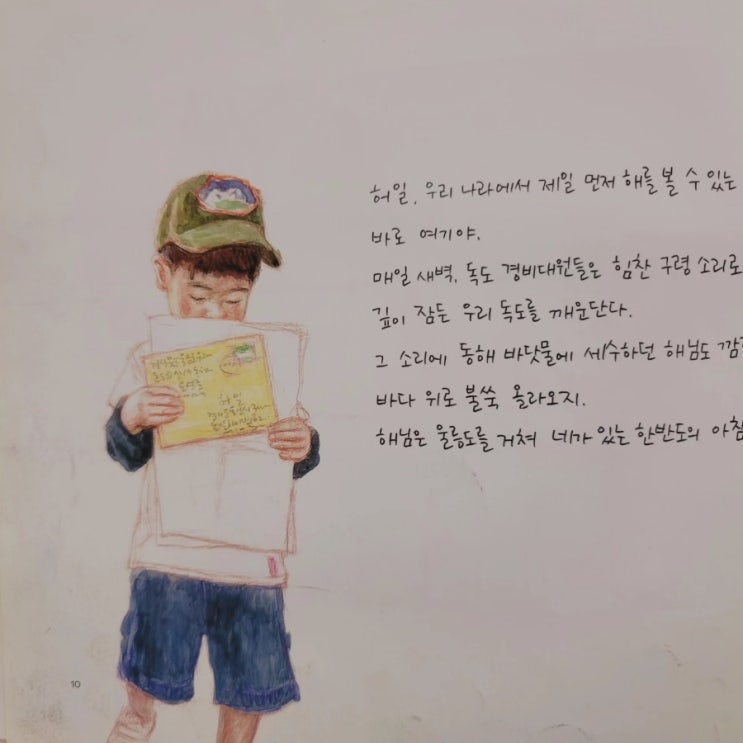 허일, 우리 나라에서 제일 먼저 해를 볼 수 있는
바로 여기야.
매일 새벽, 독도 경비대원들은 힘찬 구령 소리로
깊이 잠든 우리 독도를 깨운단다.
그 소리에 동해 바닷물에 세수하던 해님도
바다 위로 불쑥 올라오지.
해님은 울릉도를 거쳐 네가 있는 한반도의
허일
10